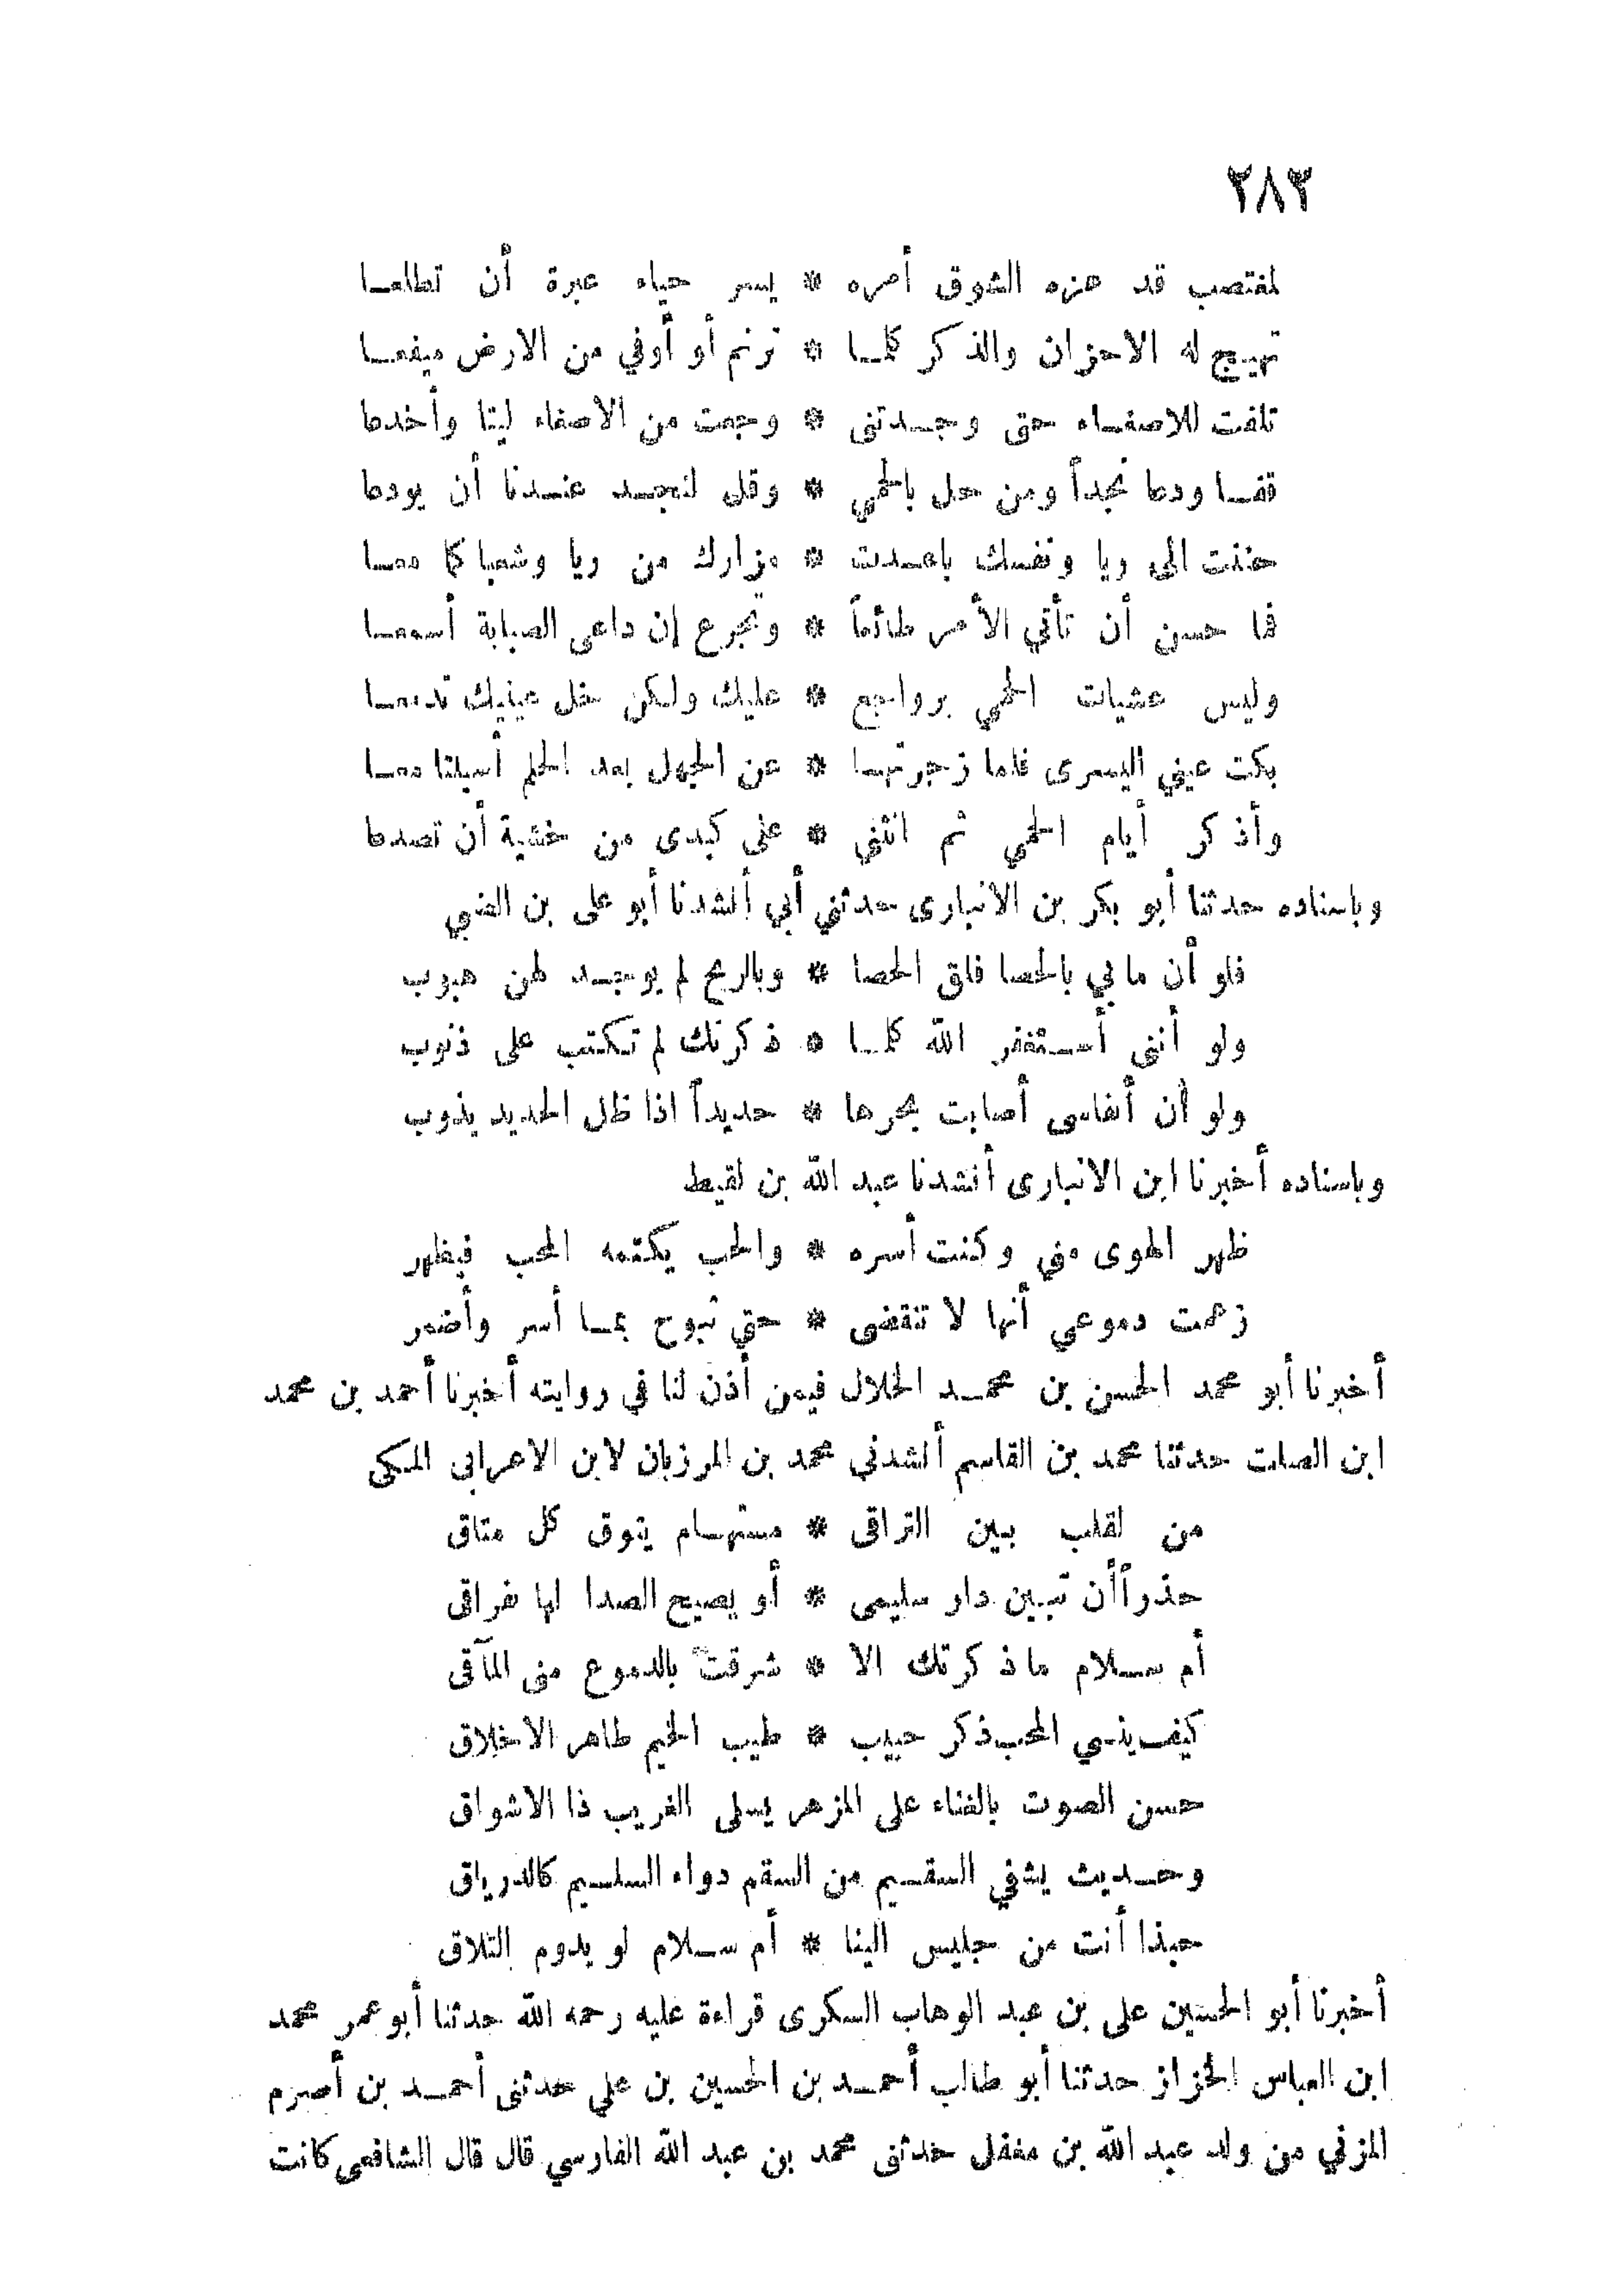 ٢٨٣
لمغتصب قد عزه الشوق أمره * يسر حياء عبرة أن تطلعـا
تهيج له الاحزان والذكر كلمـا * ترنم أو أوفي من الارض ميفعـا
تلفت للاصغـاء حتى وجـدتنى * وجعت من الاصغاء ليتا وأخدعا
قفـا ودعا نجداً ومن حل بالحمي * وقل لنجـد عنـدنا أن يودعا
حننت الى ريا ونفسك باعـدت * مزارك من ريا وشعبا كما معـا
فما حسن أن تأتي الأمر طائعاً * وتجزع إن داعى الصبابة أسمعـا
وليس عشيات الحمي برواجع * عليك ولكن خل عينيك تدمعـا
بكت عيني اليسرى فلما زجرتهـا * عن الجهل بعد الحلم أسبلتا معـا
وأذكر أيام الحمي ثم انثني * على كبدى من خشية أن تصدعا
وباسناده حدثنا أبو بكر بن الانبارى حدثني أبي أنشدنا أبو على بن الضبي
فلو أن ما بي بالحصا فلق الحصا * وبالريح لم يوجـد لهن هبوب
ولو أننى أسـتغفر الله كلمـا * ذكرتك لم تكتب على ذنوب
ولو أن أنفاسى أصابت بحرها * حديداً اذا ظل الحديد يذوب
وباسناده أخبرنا ابن الانبارى أنشدنا عبد الله بن لقيط
ظهر الهوى مني وكنت أسره * والحب يكتمه المحب فيظهر
زعمت دموعي أنها لا تنقضى * حتي تبوح بمـا أسر وأضمر
أخبرنا أبو محمد الحسن بن محمـد الخلال فيمن أذن لنا في روايته أخبرنا أحمد بن محمد
ابن الصلت حدثنا محمد بن القاسم أنشدني محمد بن المرزبان لابن الاعرابى المكى
من لقلب بين التراقى * مستهـام يتوق كل متاق
حذراً أن تبين دار سليمى * أو يصيح الصدا لها بفراقى
أم سـلام ما ذكرتك الا * شرقت بالدموع منى المآقى
كيف ينسي المحب ذكر حبيب * طيب الخيم طاهر الاخلاق
حسن الصوت بالغناء على المزهر يسلى الغريب ذا الاشواق
وحـديث يشفي السقـيم من السقم دواء السلـيم كالدرياق
حبذا أنت من جليس الينا * أم سـلام لو يدوم التلاق
أخبرنا أبو الحسين على بن عبد الوهاب السكرى قراءة عليه رحمه الله حدثنا أبو عمر محمد
ابن العباس الخزاز حدثنا أبو طالب أحمـد بن الحسين بن علي حدثنى أحمـد بن أصرم
المزني من ولد عبد الله بن مغفل حدثنى محمد بن عبد الله الفارسي قال قال الشافعى كانت